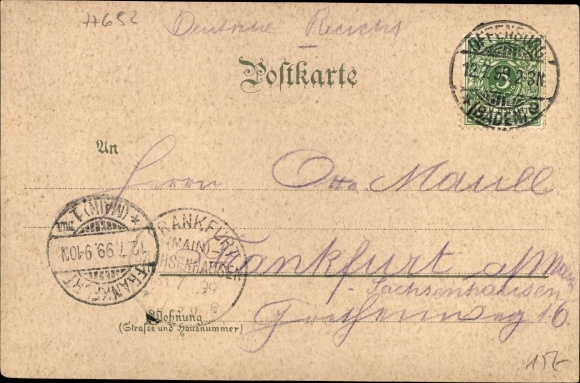 77652
Deutsche Reichs
Postkarte
OFFENBURG
12.7.99. 2-3N.
* (BADEN) *
5
An
Herrn Otto Maull
* (MAIN) 1
12.7.99. 9-10N.
FRANKFURT
FRANKFURT
(MAIN)-
SACHSENHAUSEN
99
Frankfurt a/Main
Sachsenhausen
Wohnung
(Straße und Hausnummer)
16.
15£